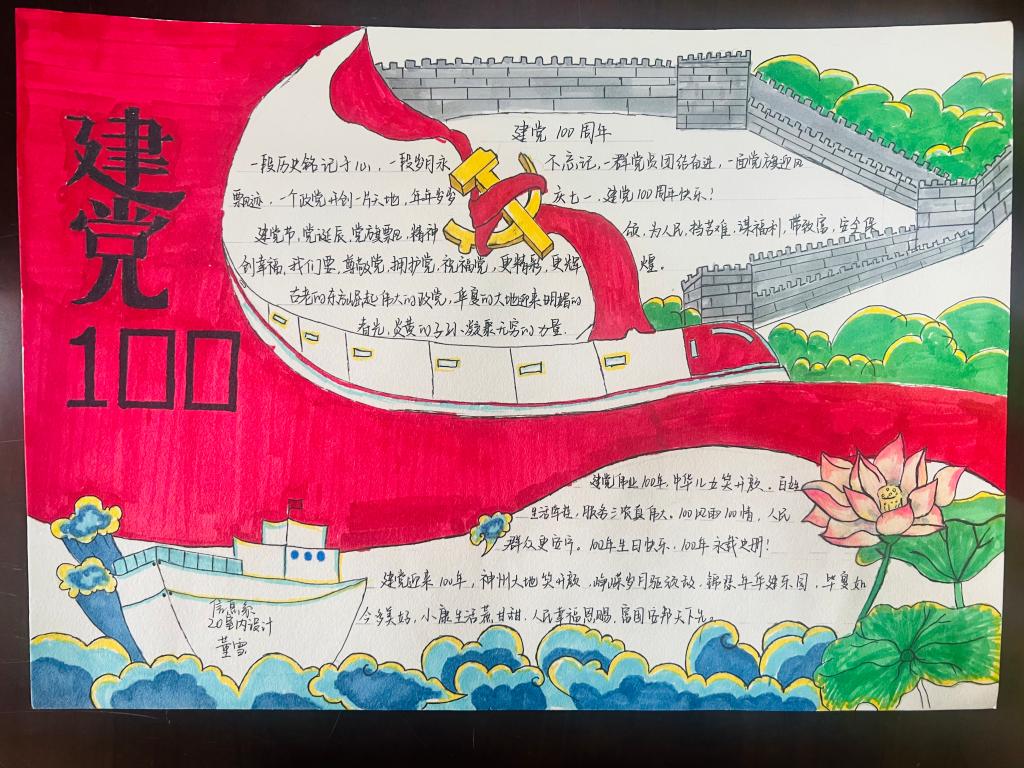 建党
100
建党 100 周年
一段历史铭记于心,一段岁月永不忘记,一群党员团结奋进,一面党旗迎风
飘,一个政党开创一片天地,年年岁岁庆七一,建党100周年快乐!
建党节,党诞辰,党旗飘,精神领,为人民,挡苦难,谋福利,带致富,安全保,
创幸福,我们要,尊敬党,拥护党,祝福党,更精彩,更辉煌。
古老的东方崛起伟大的政党,华夏的大地迎来明媚的
春光,炎黄的子孙凝聚无穷的力量.
建党伟业100年,中华儿女笑开颜。百姓
生活,服务三农真伟大。100风雨100情,人民
群众更安宁。100年生日快乐,100年永载史册!
建党迎来100年,神州大地笑开颜,峥嵘岁月,锦年年建乐园,华夏如
今多美好,小康生活甘甜,人民幸福恩赐,富国安邦天下先。
信息系
20室内设计
董雪